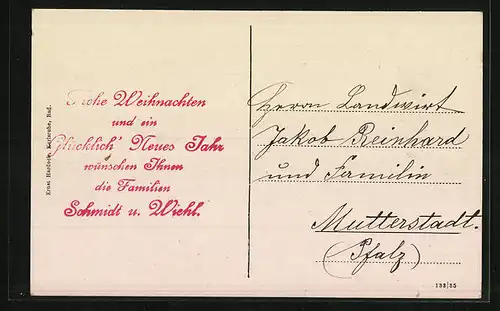 Frohe Weihnachten
und ein
Glücklich' Neues Jahr
wünschen Ihnen
die Familien
Schmidt u. Wiehl.
Herrn Landwirt
Jakob Reinhard
und Familie
Mutterstadt.
(Pfalz)
Karlsruhe, Bad.
133/35